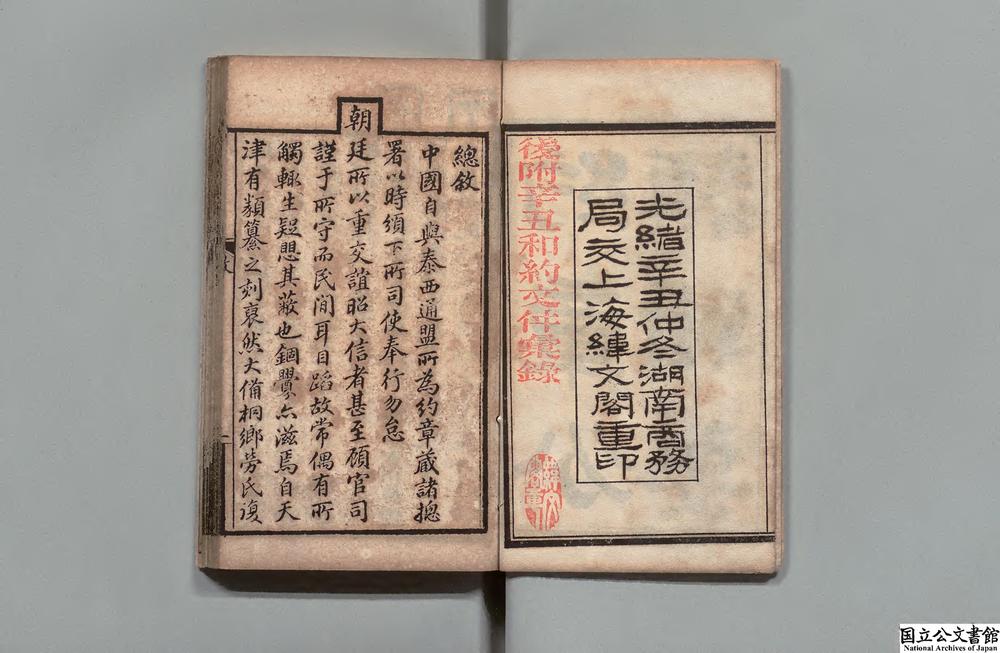 光緒辛丑仲冬湖南商務
局交上海緯文閣重印
後附辛丑和約文件彙錄
總敘
中國自與泰西通盟所為約章蔵諸摠
署以時頒下所司使奉行勿怠
朝
廷所以重交誼昭大信者甚至顧官司
謹于所守而民间耳目蹈故常偶有所
觸輒生疑愳其蔽也錮舋亦滋焉自天
津有類纂之刻裒然大備桐鄉勞氏復
国立公文書館
National Archives of Japan